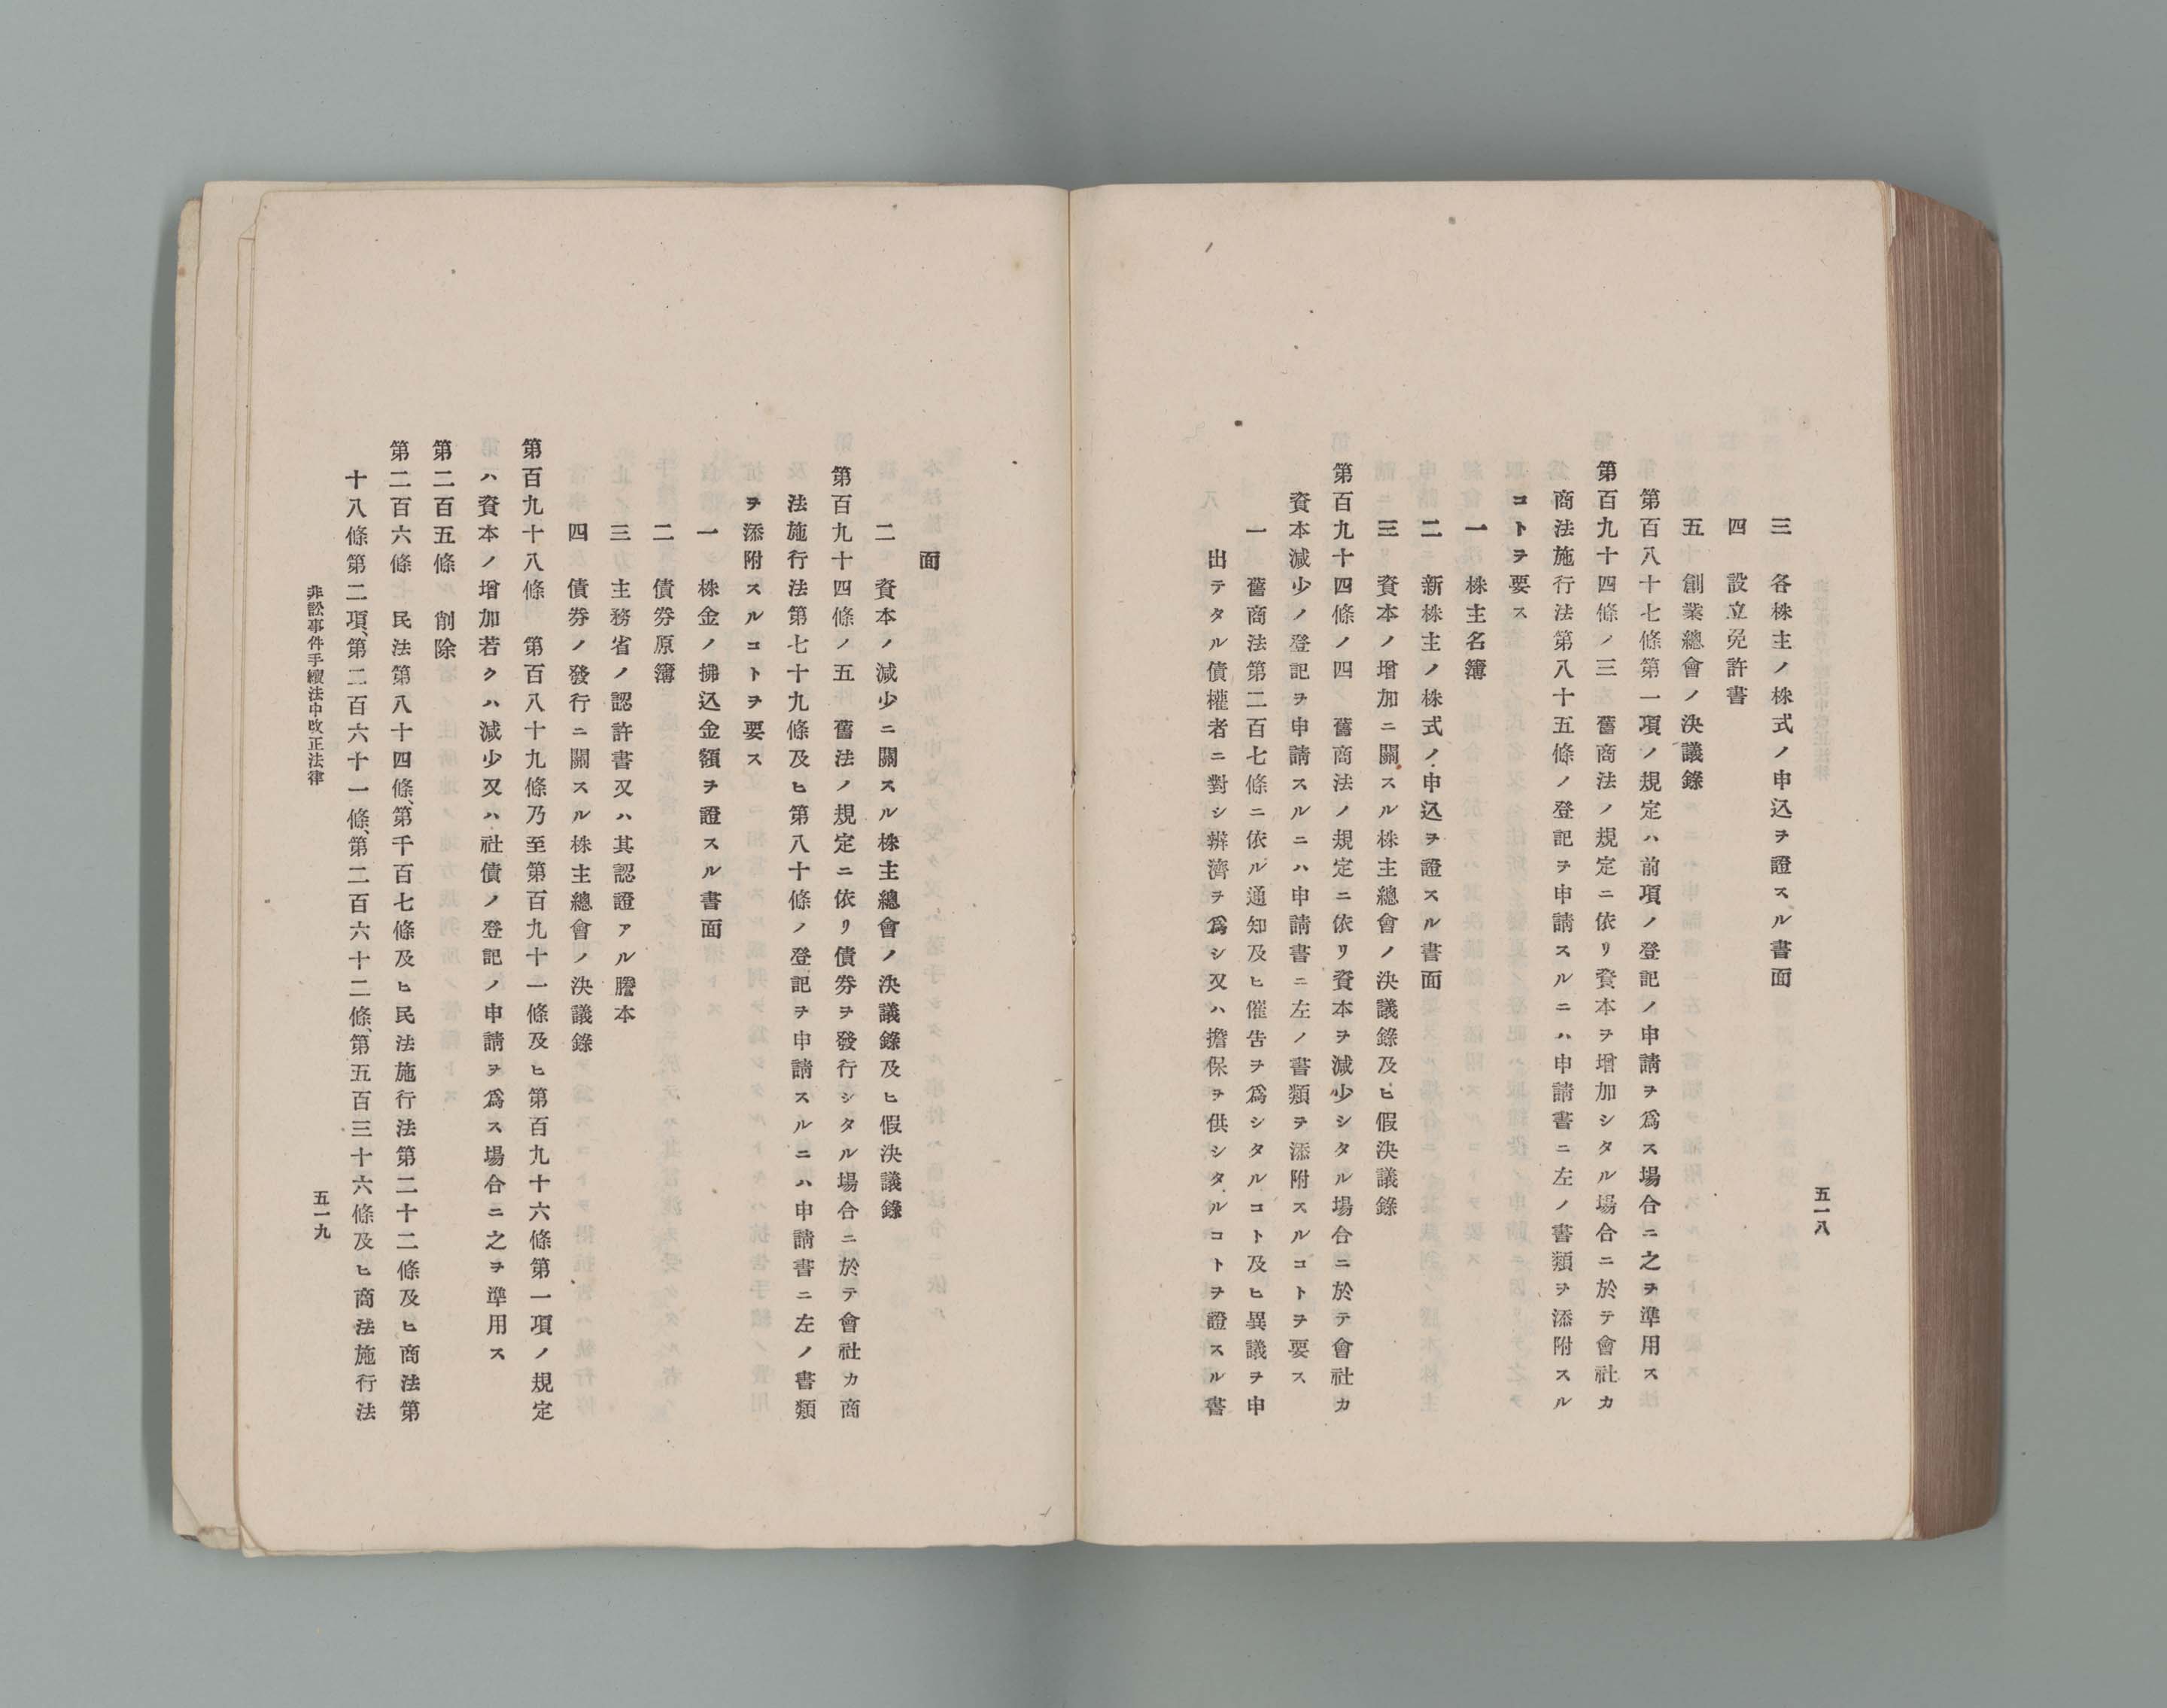 五一八
三　各株主ノ株式ノ申込ヲ證スル書面
四　設立免許書
五　創業總會ノ決議錄
第百八十七條第一項ノ規定ハ前項ノ登記ノ申請ヲ爲ス場合ニ之ヲ準用ス
第百九十四條ノ三　舊商法ノ規定ニ依リ資本ヲ增加シタル場合ニ於テ會社カ
商法施行法第八十五條ノ登記ヲ申請スルニハ申請書ニ左ノ書類ヲ添附スル
コトヲ要ス
一　株主名簿
二　新株主ノ株式ノ申込ヲ證スル書面
三　資本ノ增加ニ關スル株主總會ノ決議錄及ヒ假決議錄
第百九十四條ノ四　舊商法ノ規定ニ依リ資本ヲ減少シタル場合ニ於テ會社カ
資本減少ノ登記ヲ申請スルニハ申請書ニ左ノ書類ヲ添附スルコトヲ要ス
一　舊商法第二百七條ニ依ル通知及ヒ催告ヲ爲シタルコト及ヒ異議ヲ申
出テタル債權者ニ對シ辨濟ヲ爲シ又ハ擔保ヲ供シタルコトヲ證スル書
面
二　資本ノ減少ニ關スル株主總會ノ決議錄及ヒ假決議錄
第百九十四條ノ五　舊法ノ規定ニ依リ債券ヲ發行シタル場合ニ於テ會社カ商
法施行法第七十九條及ヒ第八十條ノ登記ヲ申請スルニハ申請書ニ左ノ書類
ヲ添附スルコトヲ要ス
一　株金ノ拂込金額ヲ證スル書面
二　債券原簿
三　主務省ノ認許書又ハ其認證アル謄本
四　債券ノ發行ニ關スル株主總會ノ決議錄
第百九十八條　第百八十九條乃至第百九十一條及ヒ第百九十六條第一項ノ規定
ハ資本ノ增加若クハ減少又ハ社債ノ登記ノ申請ヲ爲ス場合ニ之ヲ準用ス
第二百五條　削除
第二百六條　民法第八十四條、第千百七條及ヒ民法施行法第二十二條及ヒ商法第
十八條第二項、第二百六十一條、第二百六十二條、第五百三十六條及ヒ商法施行法
非訟事件手續法中改正法律
五一九